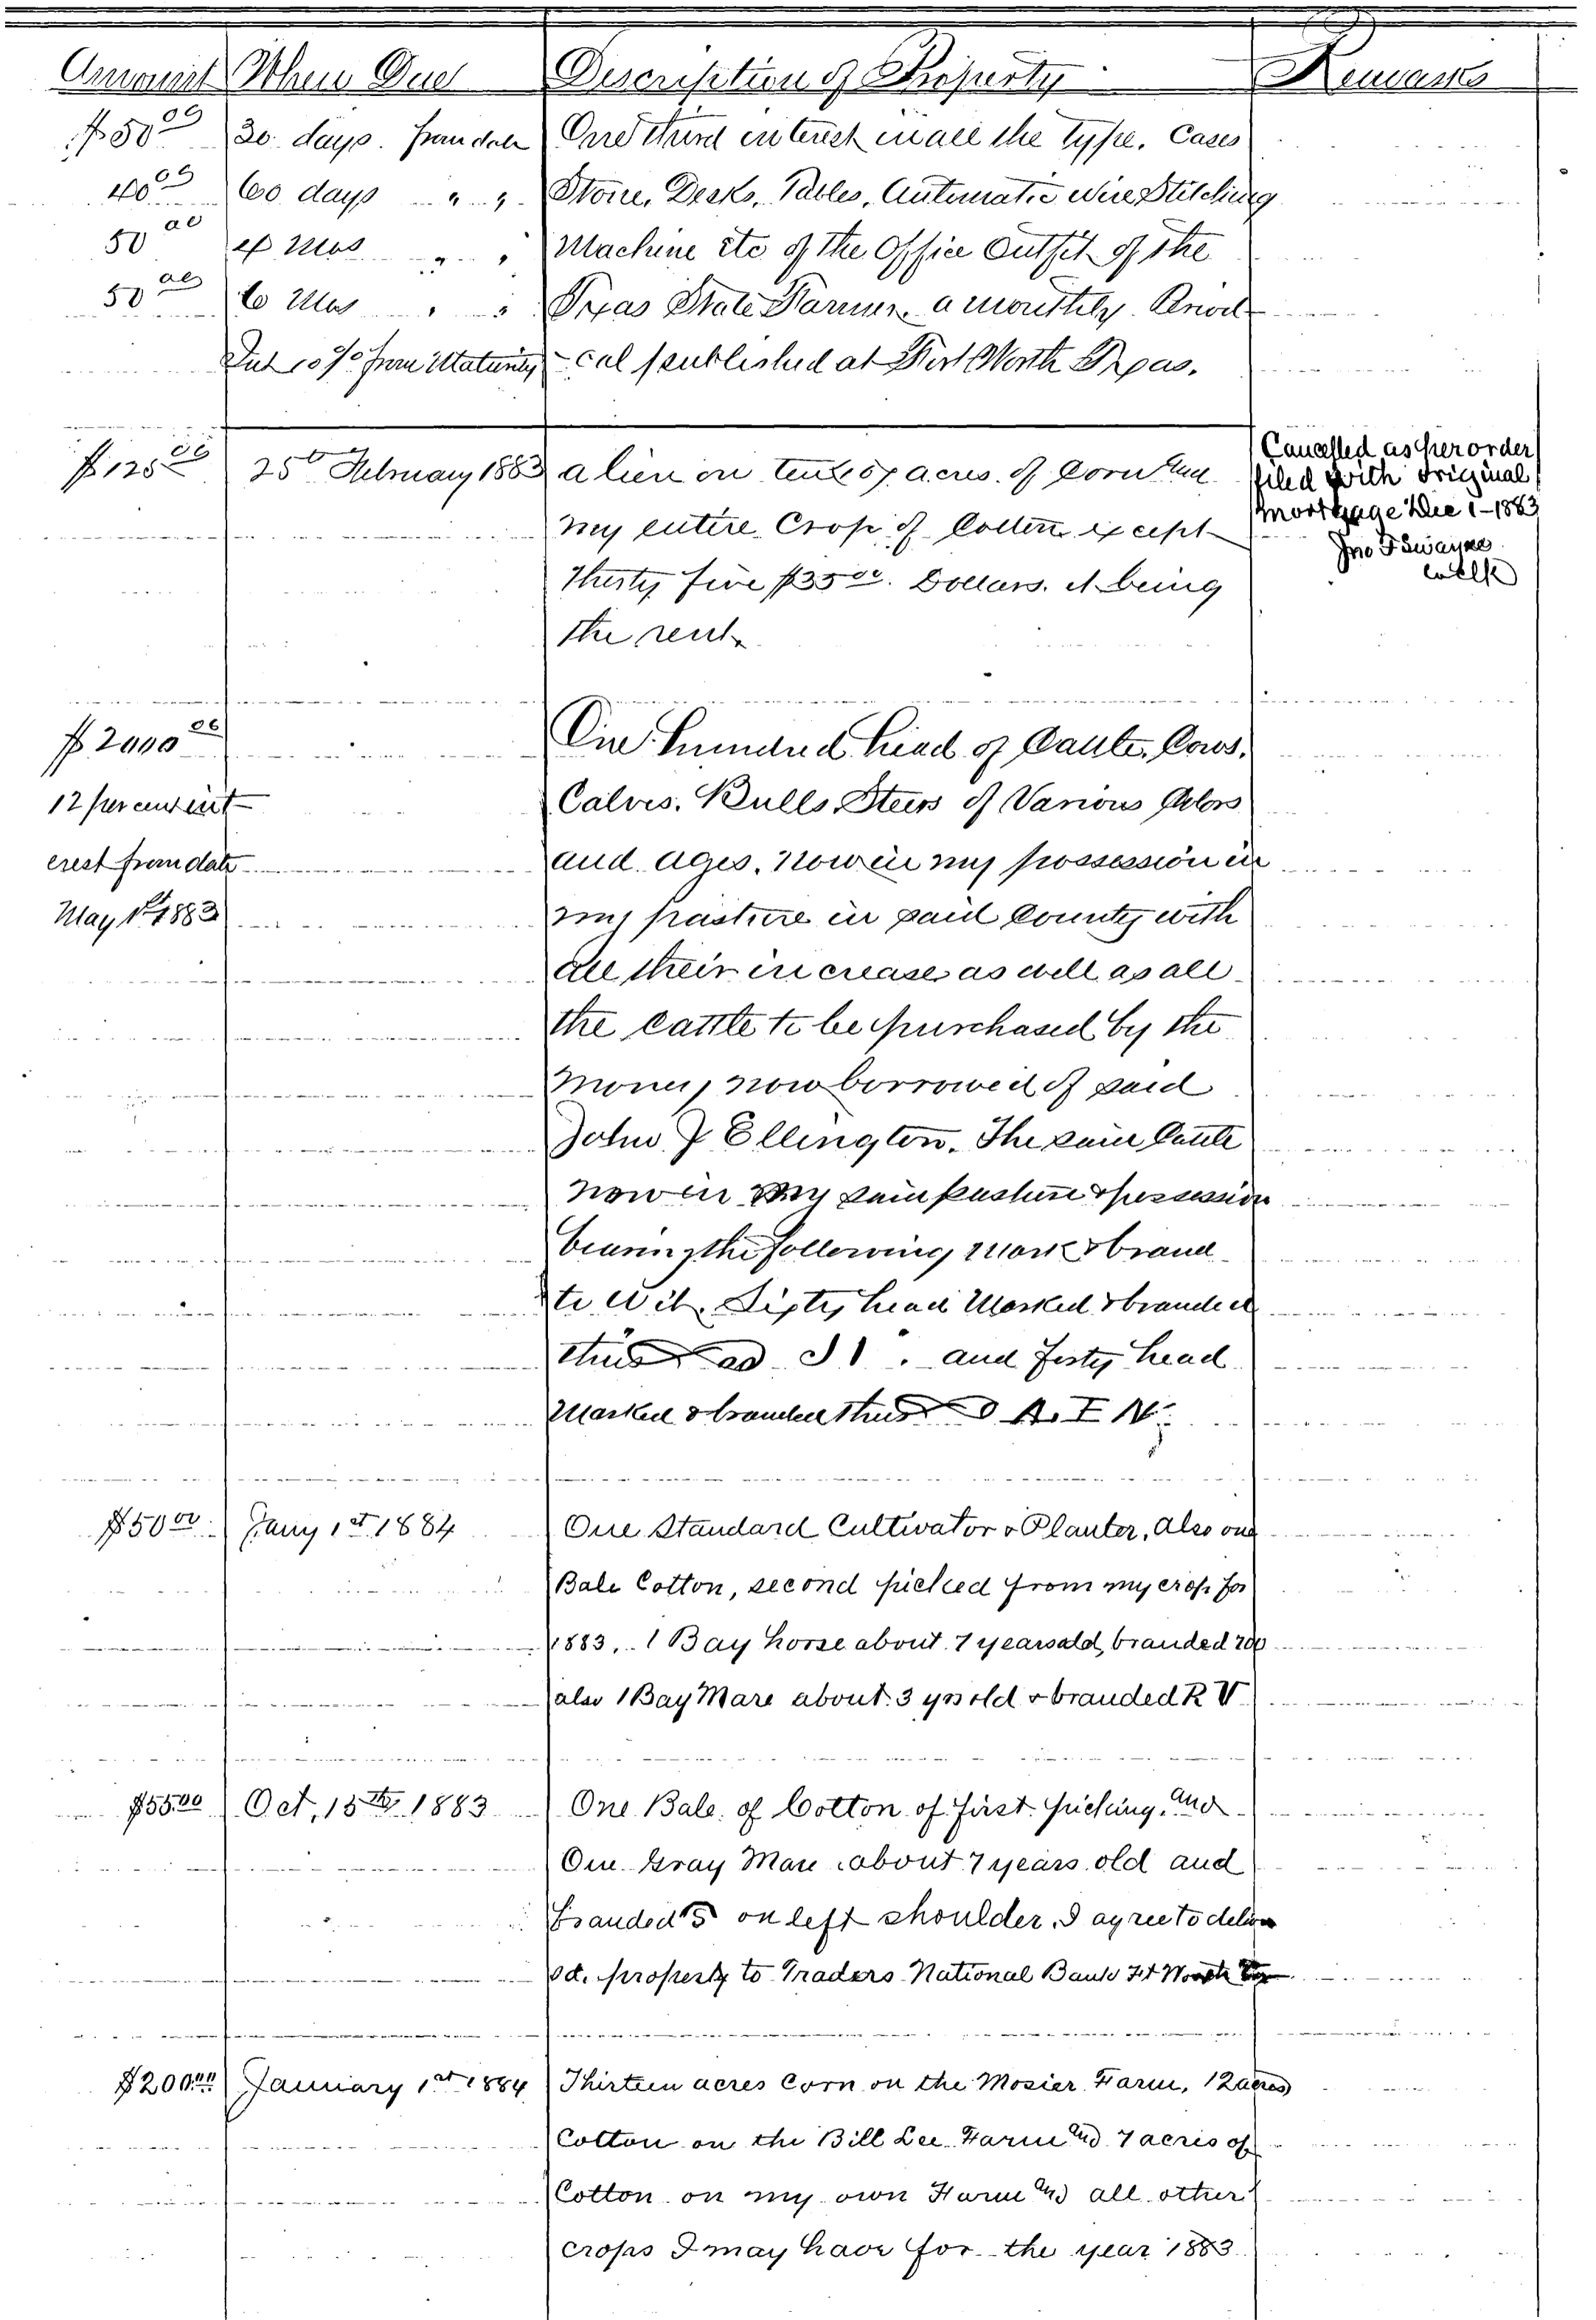 Amount When Due Description of Property Remarks
$50 00 30 days from date One third interest in all the type, Cases
40 00 60 days " " Stone, Desks, Tables, Automatic Wire Stitching
50 00 4 Mos " " Machine etc of the Office Outfit of the
50 00 6 Mos " " Texas State Farmer, a monthly Period
Int 10% from Maturity -cal published at Fort Worth Texas.
$125 00 25th February 1883 a lien on ten acres of Corn
my entire Crop of Cotton except
Thirty five $35 00. Dollars. it being
the rent
Cancelled as per order
filed with original
Mortgage Dec 1-1883
Jno F Swayne
Clk
$2000 00 One hundred head of Cattle, Cows,
12 per cent int- Calves, Bulls, Steers of Various Colors
erest from date and Ages, Now in my possession in
May 1st 1883 my pasture in said County with
all their increase as well as all
the cattle to be purchased by the
Money now borrowed of said
John J Ellington. The said Cattle
now in my said pasture & possession
bearing the following Mark & brand
to wit, Sixty head Marked & branded
thus and forty head
Marked & branded thus
$50 00 Jany 1st 1884 One Standard Cultivator & Planter, Also one
Bale Cotton, second picked from my crop for
1883, 1 Bay horse about 7 years old, branded
also 1 Bay Mare about 3 yrs old & branded R V
$55.00 Oct, 15th 1883 One Bale of Cotton of first picking, and
One Gray Mare about 7 years old and
branded 5 on left shoulder. I agree to deliver
sd. property to Traders National Bank Ft Worth Tex
$200.00 January 1st 1884 Thirteen acres Corn on the Mosier Farm, 12 acres
Cotton on the Bill Lee Farm and 7 acres of
Cotton on my own Farm and all other
crops I may have for the year 1883